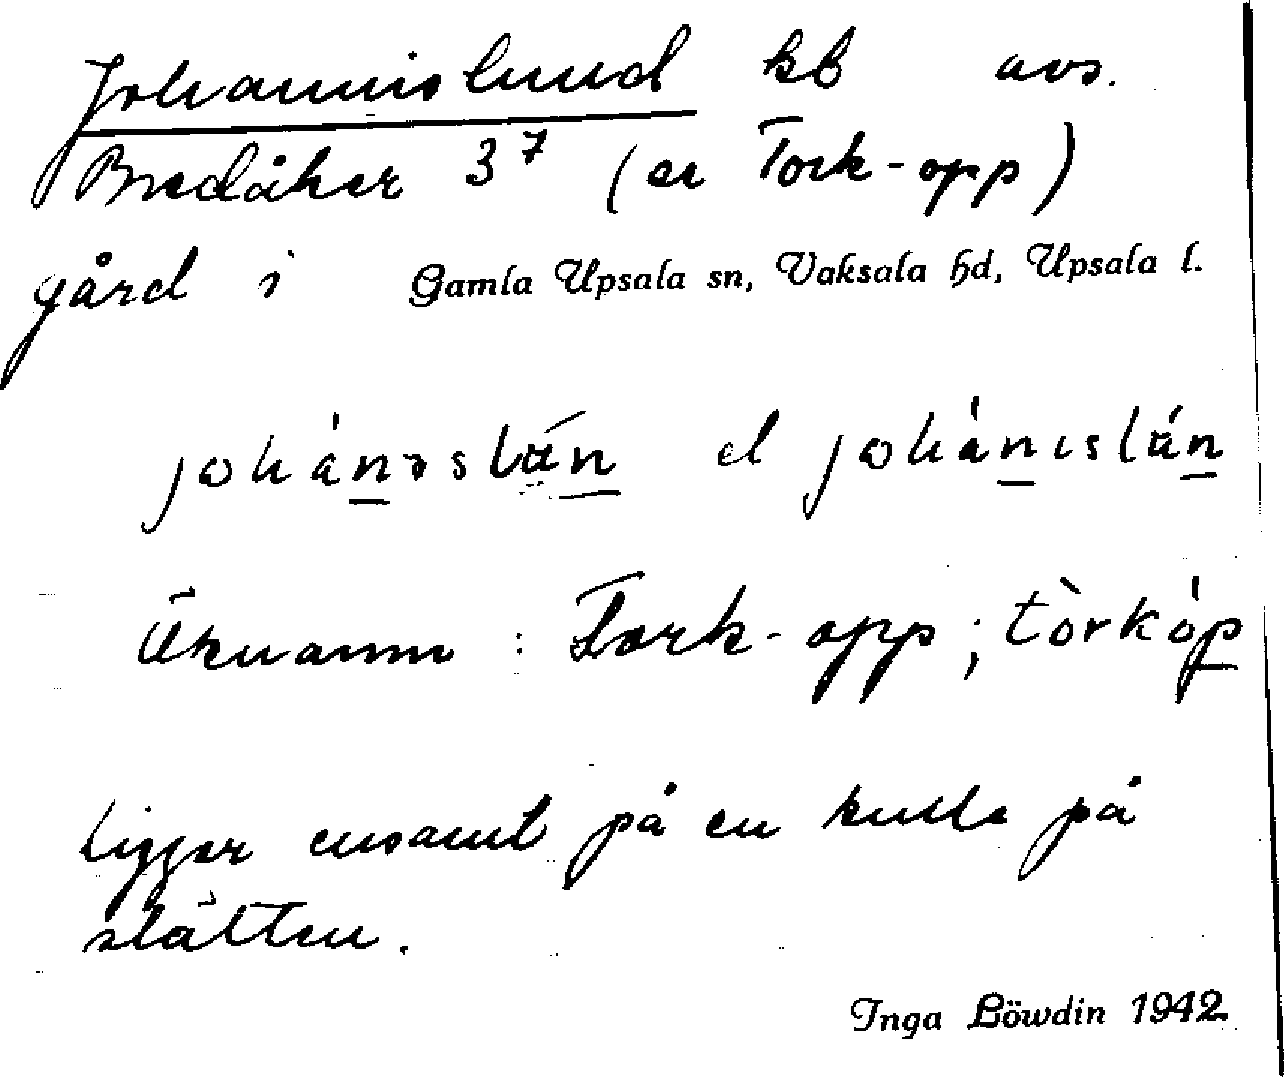 Johannislund kb avs.
Bredåker 3⁷ (er Tork-opp)
gård i Gamla Upsala sn, Vaksala hd, Upsala l.
johánɪslún el johánɪslún
Öknamn : Tork-opp ; tòrkóp
ligger ensamt på en kulle på
slätten.
Inga Löwdin 1942